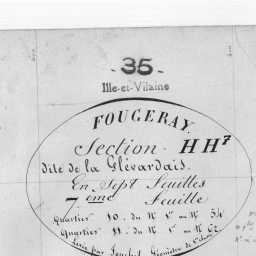 - 35 -
Ille-et-Vilaine
FOUGERAY.
Section HH⁷
dite de la Glévardais.
En Sept Feuilles
7ᵉᵐᵉ Feuille
Quartier 10. du Nº 1 au Nº 54
Quartier 11. du Nº 1 au Nº 62.
Levée par